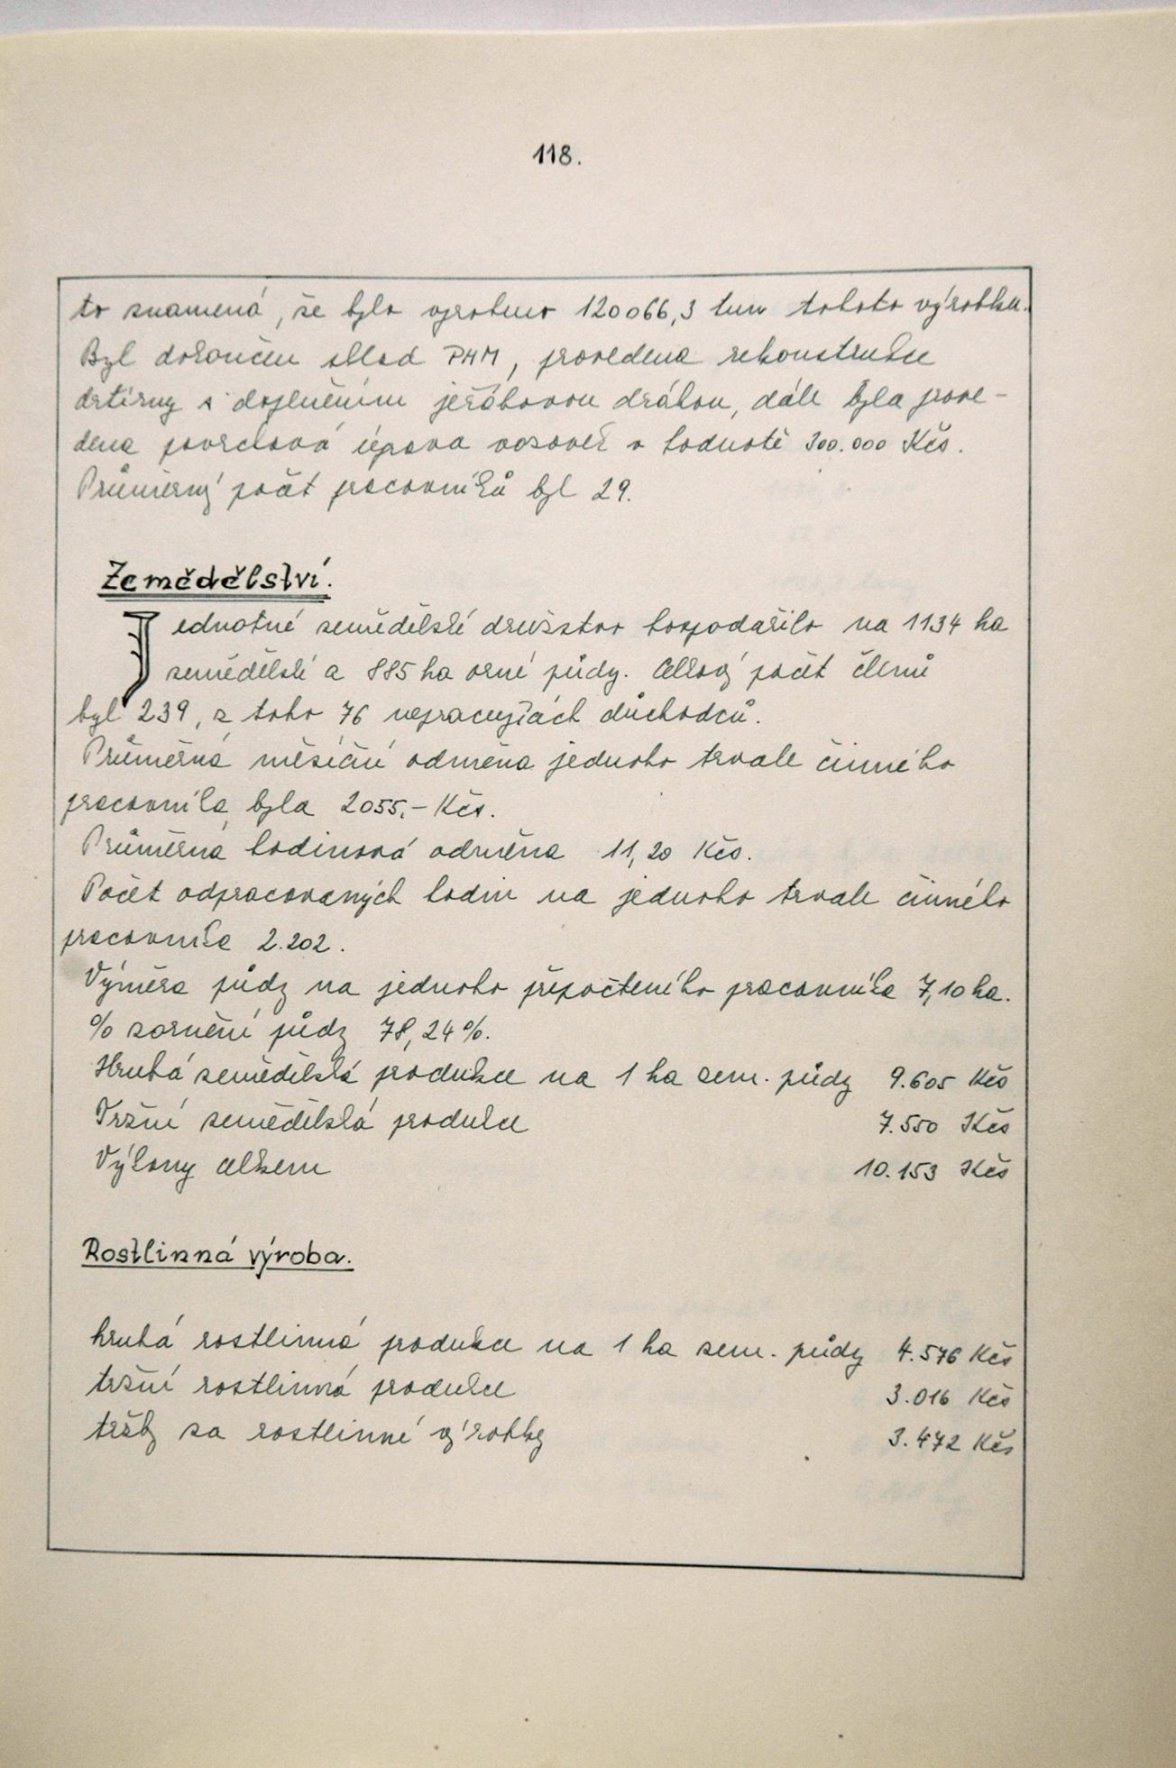 118.
to znamená, že bylo vyrobeno 120 066,3 tun tohoto výrobku.
Byl dokončen sklad PHM, provedena rekonstrukce
drtírny s doplněním jeřábovou dráhou, dále byla prove-
dena povrchová úprava vozovek v hodnotě 300.000 Kčs.
Průměrný počet pracovníků byl 29.
Zemědělství.
Jednotné zemědělské družstvo hospodařilo na 1134 ha
zemědělské a 885 ha orné půdy. Celkový počet členů
byl 239, z toho 76 nepracujících důchodců.
Průměrná měsíční odměna jednoho trvale činného
pracovníka byla 2055,- Kčs.
Průměrná hodinová odměna 11,20 Kčs.
Počet odpracovaných hodin na jednoho trvale činného
pracovníka 2.202.
Výměra půdy na jednoho přepočteného pracovníka 7,10 ha.
% zornění půdy 78,24%.
Hrubá zemědělská produkce na 1 ha zem. půdy 9.605 Kčs
Tržní zemědělská produkce 7.550 Kčs
Výkony celkem 10.153 Kčs
Rostlinná výroba.
hrubá rostlinná produkce na 1 ha zem. půdy 4.576 Kčs
tržní rostlinná produkce 3.016 Kčs
tržby za rostlinné výrobky 3.472 Kčs